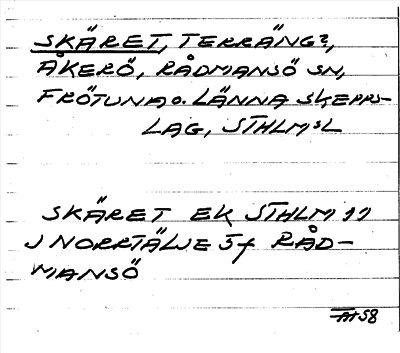 SKÄRET, TERRÄNG?,
ÅKERÖ, RÅDMANSÖ SN,
FRÖTUNA O. LÄNNA SKEPPS-
LAG, STHLMSL
SKÄRET EK STHLM 11
J NORRTÄLJE 5f RÅD-
MANSÖ
AH 58